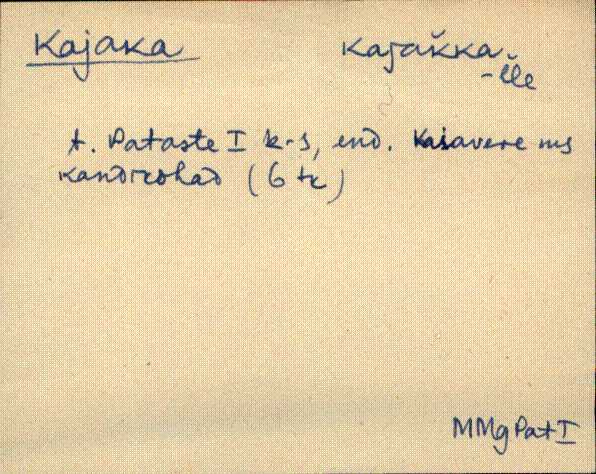 Kajaka
kajaǩka
-l̆le
t. Pataste I k-s, end. Kaiavere ms
kandikohad (6 tk)
MMg Pat I